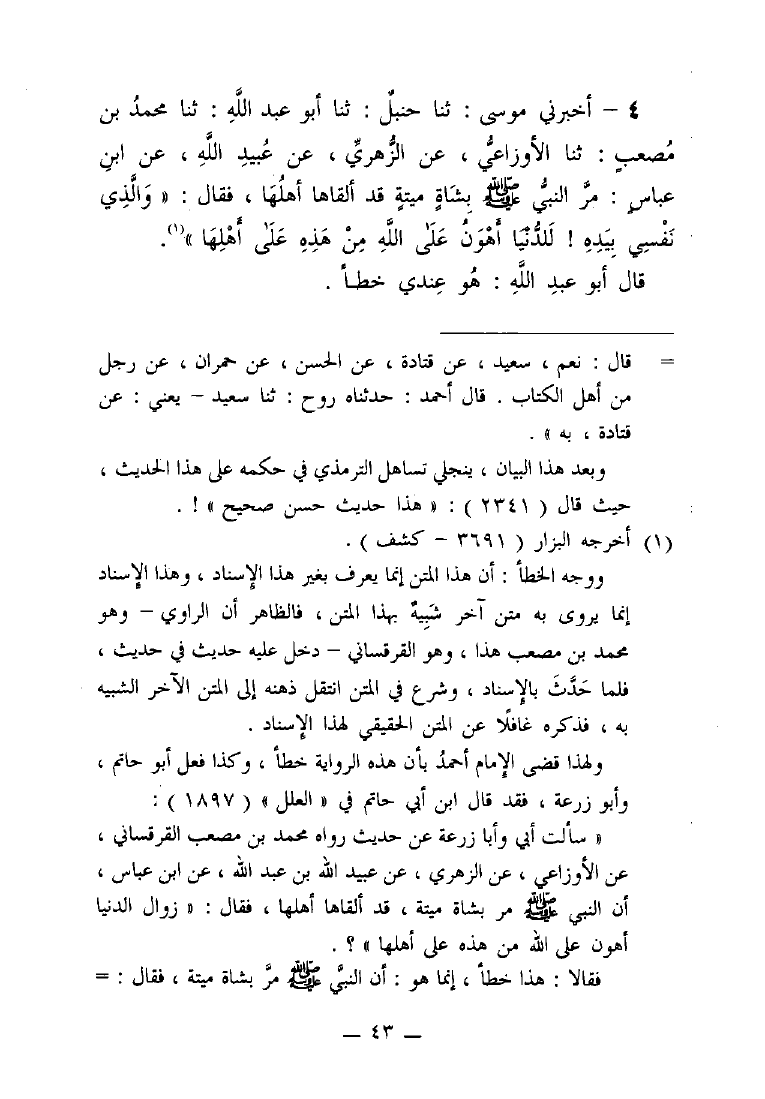 ٤ – أخبرني موسى : ثنا حنبلٌ : ثنا أبو عبد اللَّهِ : ثنا محمدُ بن
مُصعبٍ : ثنا الأوزاعيُّ ، عن الزُّهريِّ ، عن عُبيدِ اللَّهِ ، عن ابنِ
عباسٍ : مرَّ النبيُّ ﷺ بِشَاةٍ ميتةٍ قد ألقاها أهلُهَا ، فقال : « وَالَّذِي
نَفْسِي بِيَدِهِ ! لَلدُّنْيَا أَهْوَنُ عَلَى اللَّهِ مِنْ هَذِهِ عَلَى أَهْلِهَا »(١).
قال أبو عبدِ اللَّهِ : هُو عِندي خطـأ .
= قال : نعم ، سعيد ، عن قتادة ، عن الحسن ، عن حمران ، عن رجل
من أهل الكتاب . قال أحمد : حدثناه روح : ثنا سعيد – يعني : عن
قتادة ، به » .
وبعد هذا البيان ، ينجلي تساهل الترمذي في حكمه على هذا الحديث ،
حيث قال ( ٢٣٤١ ) : « هذا حديث حسن صحيح » ! .
(١) أخرجه البزار ( ٣٦٩١ – كشف ) .
ووجه الخطأ : أن هذا المتن إنما يعرف بغير هذا الإسناد ، وهذا الإسناد
إنما يروى به متن آخر شَبِيهٌ بهذا المتن ، فالظاهر أن الراوي – وهو
محمد بن مصعب هذا ، وهو القرقساني – دخل عليه حديث في حديث ،
فلما حَدَّثَ بالإسناد ، وشرع في المتن انتقل ذهنه إلى المتن الآخر الشبيه
به ، فذكره غافلًا عن المتن الحقيقي لهذا الإسناد .
ولهذا قضى الإمام أحمدُ بأن هذه الرواية خطأ ، وكذا فعل أبو حاتم ،
وأبو زرعة ، فقد قال ابن أبي حاتم في « العلل » ( ١٨٩٧ ) :
« سألت أبي وأبا زرعة عن حديث رواه محمد بن مصعب القرقساني ،
عن الأوزاعي ، عن الزهري ، عن عبيد الله بن عبد الله ، عن ابن عباس ،
أن النبي ﷺ مر بشاة ميتة ، قد ألقاها أهلها ، فقال : « زوال الدنيا
أهون على الله من هذه على أهلها » ؟ .
فقالا : هذا خطأ ، إنما هو : أن النبيَّ ﷺ مرَّ بشاة ميتة ، فقال : =
– ٤٣ –